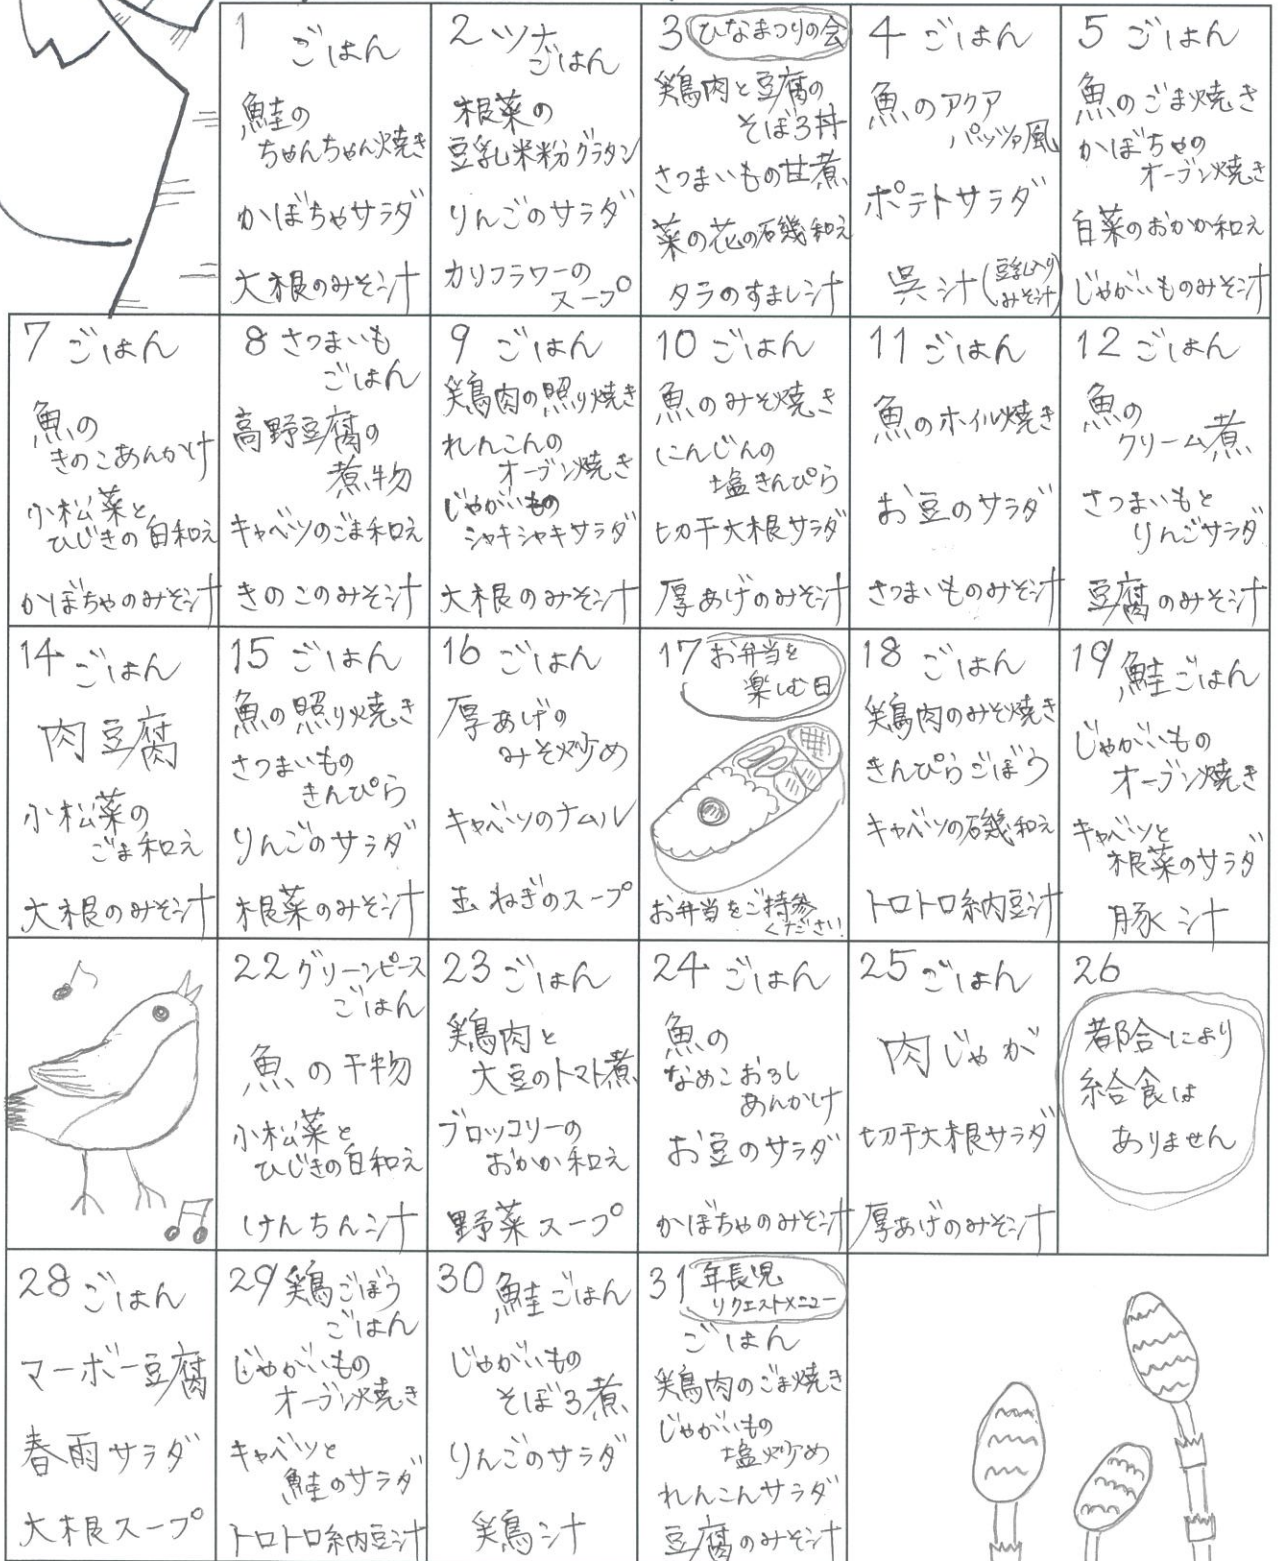 1 ごはん
鮭の
ちゃんちゃん焼き
かぼちゃサラダ
大根のみそ汁
2 ツナ
ごはん
根菜の
豆乳米粉グラタン
りんごのサラダ
カリフラワーの
スープ
3 ひなまつりの会
鶏肉と豆腐の
そぼろ丼
さつまいもの甘煮
菜の花の磯和え
タラのすまし汁
4 ごはん
魚のアクア
パッツァ風
ポテトサラダ
呉汁(豆乳入り
みそ汁)
5 ごはん
魚のごま焼き
かぼちゃの
オーブン焼き
白菜のおかか和え
じゃがいものみそ汁
7 ごはん
魚の
きのこあんかけ
小松菜と
ひじきの白和え
かぼちゃのみそ汁
8 さつまいも
ごはん
高野豆腐の
煮物
キャベツのごま和え
きのこのみそ汁
9 ごはん
鶏肉の照り焼き
れんこんの
オーブン焼き
じゃがいもの
シャキシャキサラダ
大根のみそ汁
10 ごはん
魚のみそ焼き
にんじんの
塩きんぴら
切干大根サラダ
厚あげのみそ汁
11 ごはん
魚のホイル焼き
お豆のサラダ
さつまいものみそ汁
12 ごはん
魚の
クリーム煮
さつまいもと
りんごサラダ
豆腐のみそ汁
14 ごはん
肉豆腐
小松菜の
ごま和え
大根のみそ汁
15 ごはん
魚の照り焼き
さつまいもの
きんぴら
りんごのサラダ
根菜のみそ汁
16 ごはん
厚あげの
みそ炒め
キャベツのナムル
玉ねぎのスープ
17 お弁当を
楽しむ日
お弁当をご持参
ください!
18 ごはん
鶏肉のみそ焼き
きんぴらごぼう
キャベツの磯和え
トロトロ納豆汁
19 鮭ごはん
じゃがいもの
オーブン焼き
キャベツと
根菜のサラダ
豚汁
22 グリーンピース
ごはん
魚の干物
小松菜と
ひじきの白和え
けんちん汁
23 ごはん
鶏肉と
大豆のトマト煮
ブロッコリーの
おかか和え
野菜スープ
24 ごはん
魚の
なめこおろし
あんかけ
お豆のサラダ
かぼちゃのみそ汁
25 ごはん
肉じゃが
切干大根サラダ
厚あげのみそ汁
26
都合により
給食は
ありません
28 ごはん
マーボー豆腐
春雨サラダ
大根スープ
29 鶏ごぼう
ごはん
じゃがいもの
オーブン焼き
キャベツと
鮭のサラダ
トロトロ納豆汁
30 鮭ごはん
じゃがいもの
そぼろ煮
りんごのサラダ
鶏汁
31 年長児
リクエストメニュー
ごはん
鶏肉のごま焼き
じゃがいもの
塩炒め
れんこんサラダ
豆腐のみそ汁